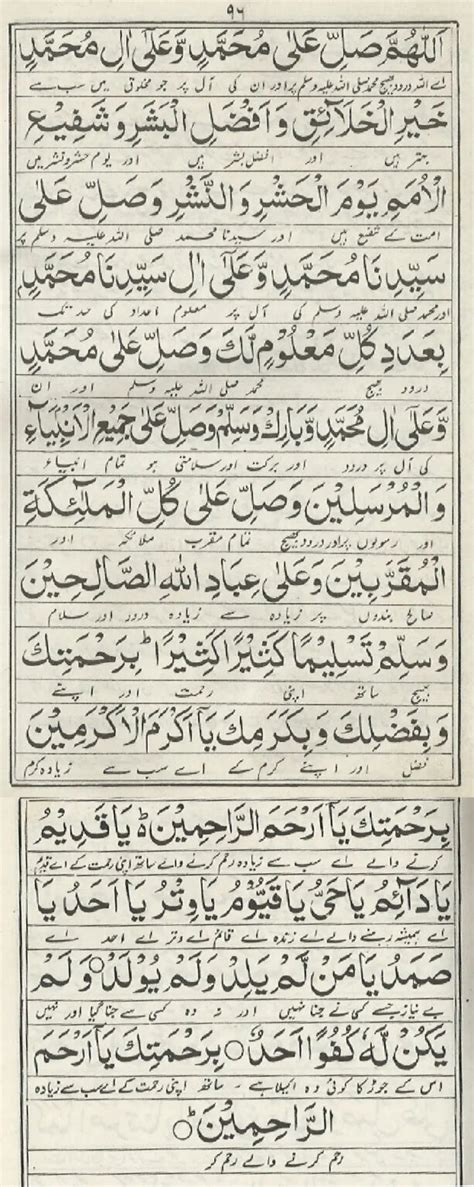 ۹۶
اَللّٰهُمَّ صَلِّ عَلٰى مُحَمَّدٍ وَّعَلٰٓى اٰلِ مُحَمَّدٍ
اے اللہ درود بھیج محمد صلی اللہ علیہ وسلم پر اور ان کی آل پر جو مخلوق میں سب سے
خَيْرِ الْخَلَآئِقِ وَاَفْضَلِ الْبَشَرِ وَشَفِيْعِ
بہتر ہیں اور افضل بشر ہیں اور یوم حشر و نشر میں
الْاُمَمِ يَوْمَ الْحَشْرِ وَالنَّشْرِ وَصَلِّ عَلٰى
امت کے شفیع ہیں اور سیدنا محمد صلی اللہ علیہ وسلم پر
سَيِّدِنَا مُحَمَّدٍ وَّعَلٰٓى اٰلِ سَيِّدِنَا مُحَمَّدٍ
اور محمد صلی اللہ علیہ وسلم کی آل پر معلوم اعداد کی حد تک
بِعَدَدِ كُلِّ مَعْلُوْمٍ لَّكَ وَصَلِّ عَلٰى مُحَمَّدٍ
درود بھیج محمد صلی اللہ علیہ وسلم اور ان
وَّعَلٰٓى اٰلِ مُحَمَّدٍ وَّبَارِكْ وَسَلِّمْ وَصَلِّ عَلٰى جَمِيْعِ الْاَنْۢبِيَآءِ
کی آل پر درود اور برکت اور سلامتی ہو تمام انبیاء
وَالْمُرْسَلِيْنَ وَصَلِّ عَلٰى كُلِّ الْمَلٰٓئِكَةِ
اور رسولوں پر اور درود بھیج تمام مقرب ملائکہ اور
الْمُقَرَّبِيْنَ وَعَلٰى عِبَادِ اللهِ الصَّالِحِيْنَ
صالح بندوں پر زیادہ سے زیادہ درود اور سلام
وَسَلِّمْ تَسْلِيْمًا كَثِيْرًا كَثِيْرًا ؕ بِرَحْمَتِكَ
بھیج ساتھ اپنی رحمت اور اپنے
وَبِفَضْلِكَ وَبِكَرَمِكَ يَآ اَكْرَمَ الْاَكْرَمِيْنَ
فضل اور اپنے کرم کے اے سب سے زیادہ کرم
بِرَحْمَتِكَ يَآ اَرْحَمَ الرَّاحِمِيْنَ ؕ يَا قَدِيْمُ
کرنے والے اے سب سے زیادہ رحم کرنے والے ساتھ اپنی رحمت کے اے قدیم
يَا دَآئِمُ يَا حَيُّ يَا قَيُّوْمُ يَا وِتْرُ يَا اَحَدُ يَا
اے ہمیشہ رہنے والے اے زندہ اے قائم اے وتر اے احد اے
صَمَدُ يَا مَنْ لَّمْ يَلِدْ وَلَمْ يُوْلَدْ ۝ وَلَمْ
بے نیاز جسے کسی نے جنا نہیں اور نہ وہ کسی سے جنا گیا اور نہیں
يَكُنْ لَّهٗ كُفُوًا اَحَدٌ ۝ بِرَحْمَتِكَ يَآ اَرْحَمَ
اس کے جوڑ کا کوئی وہ اکیلا ہے - ساتھ اپنی رحمت کے اے سب سے زیادہ
الرَّاحِمِيْنَ ۝
رحم کرنے والے رحم کر